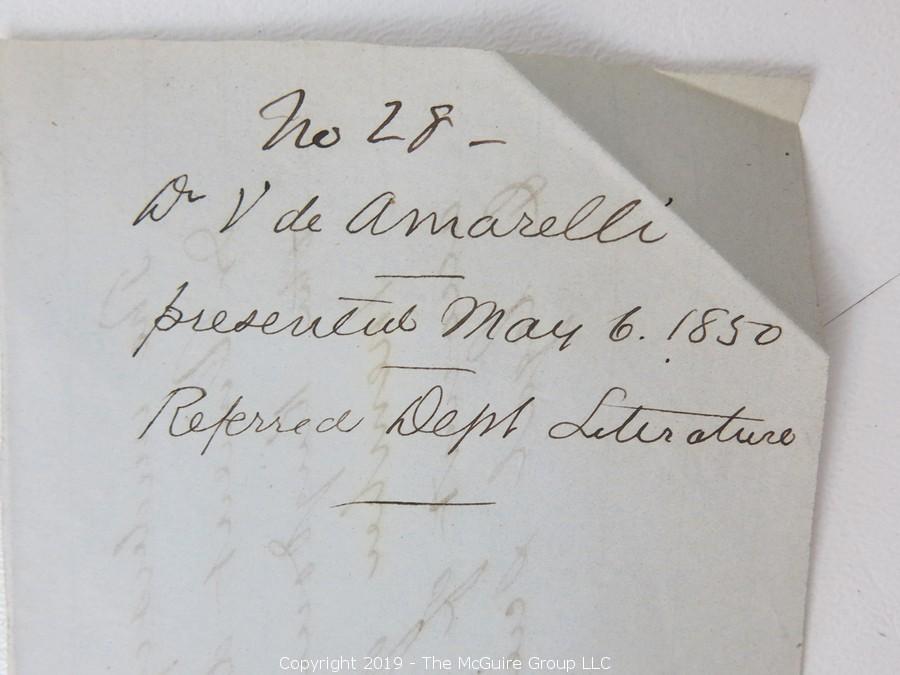 No 28 -
Dr V de Amarelli
presented May 6. 1850
Referred Dept Literature
Copyright 2019 - The McGuire Group LLC